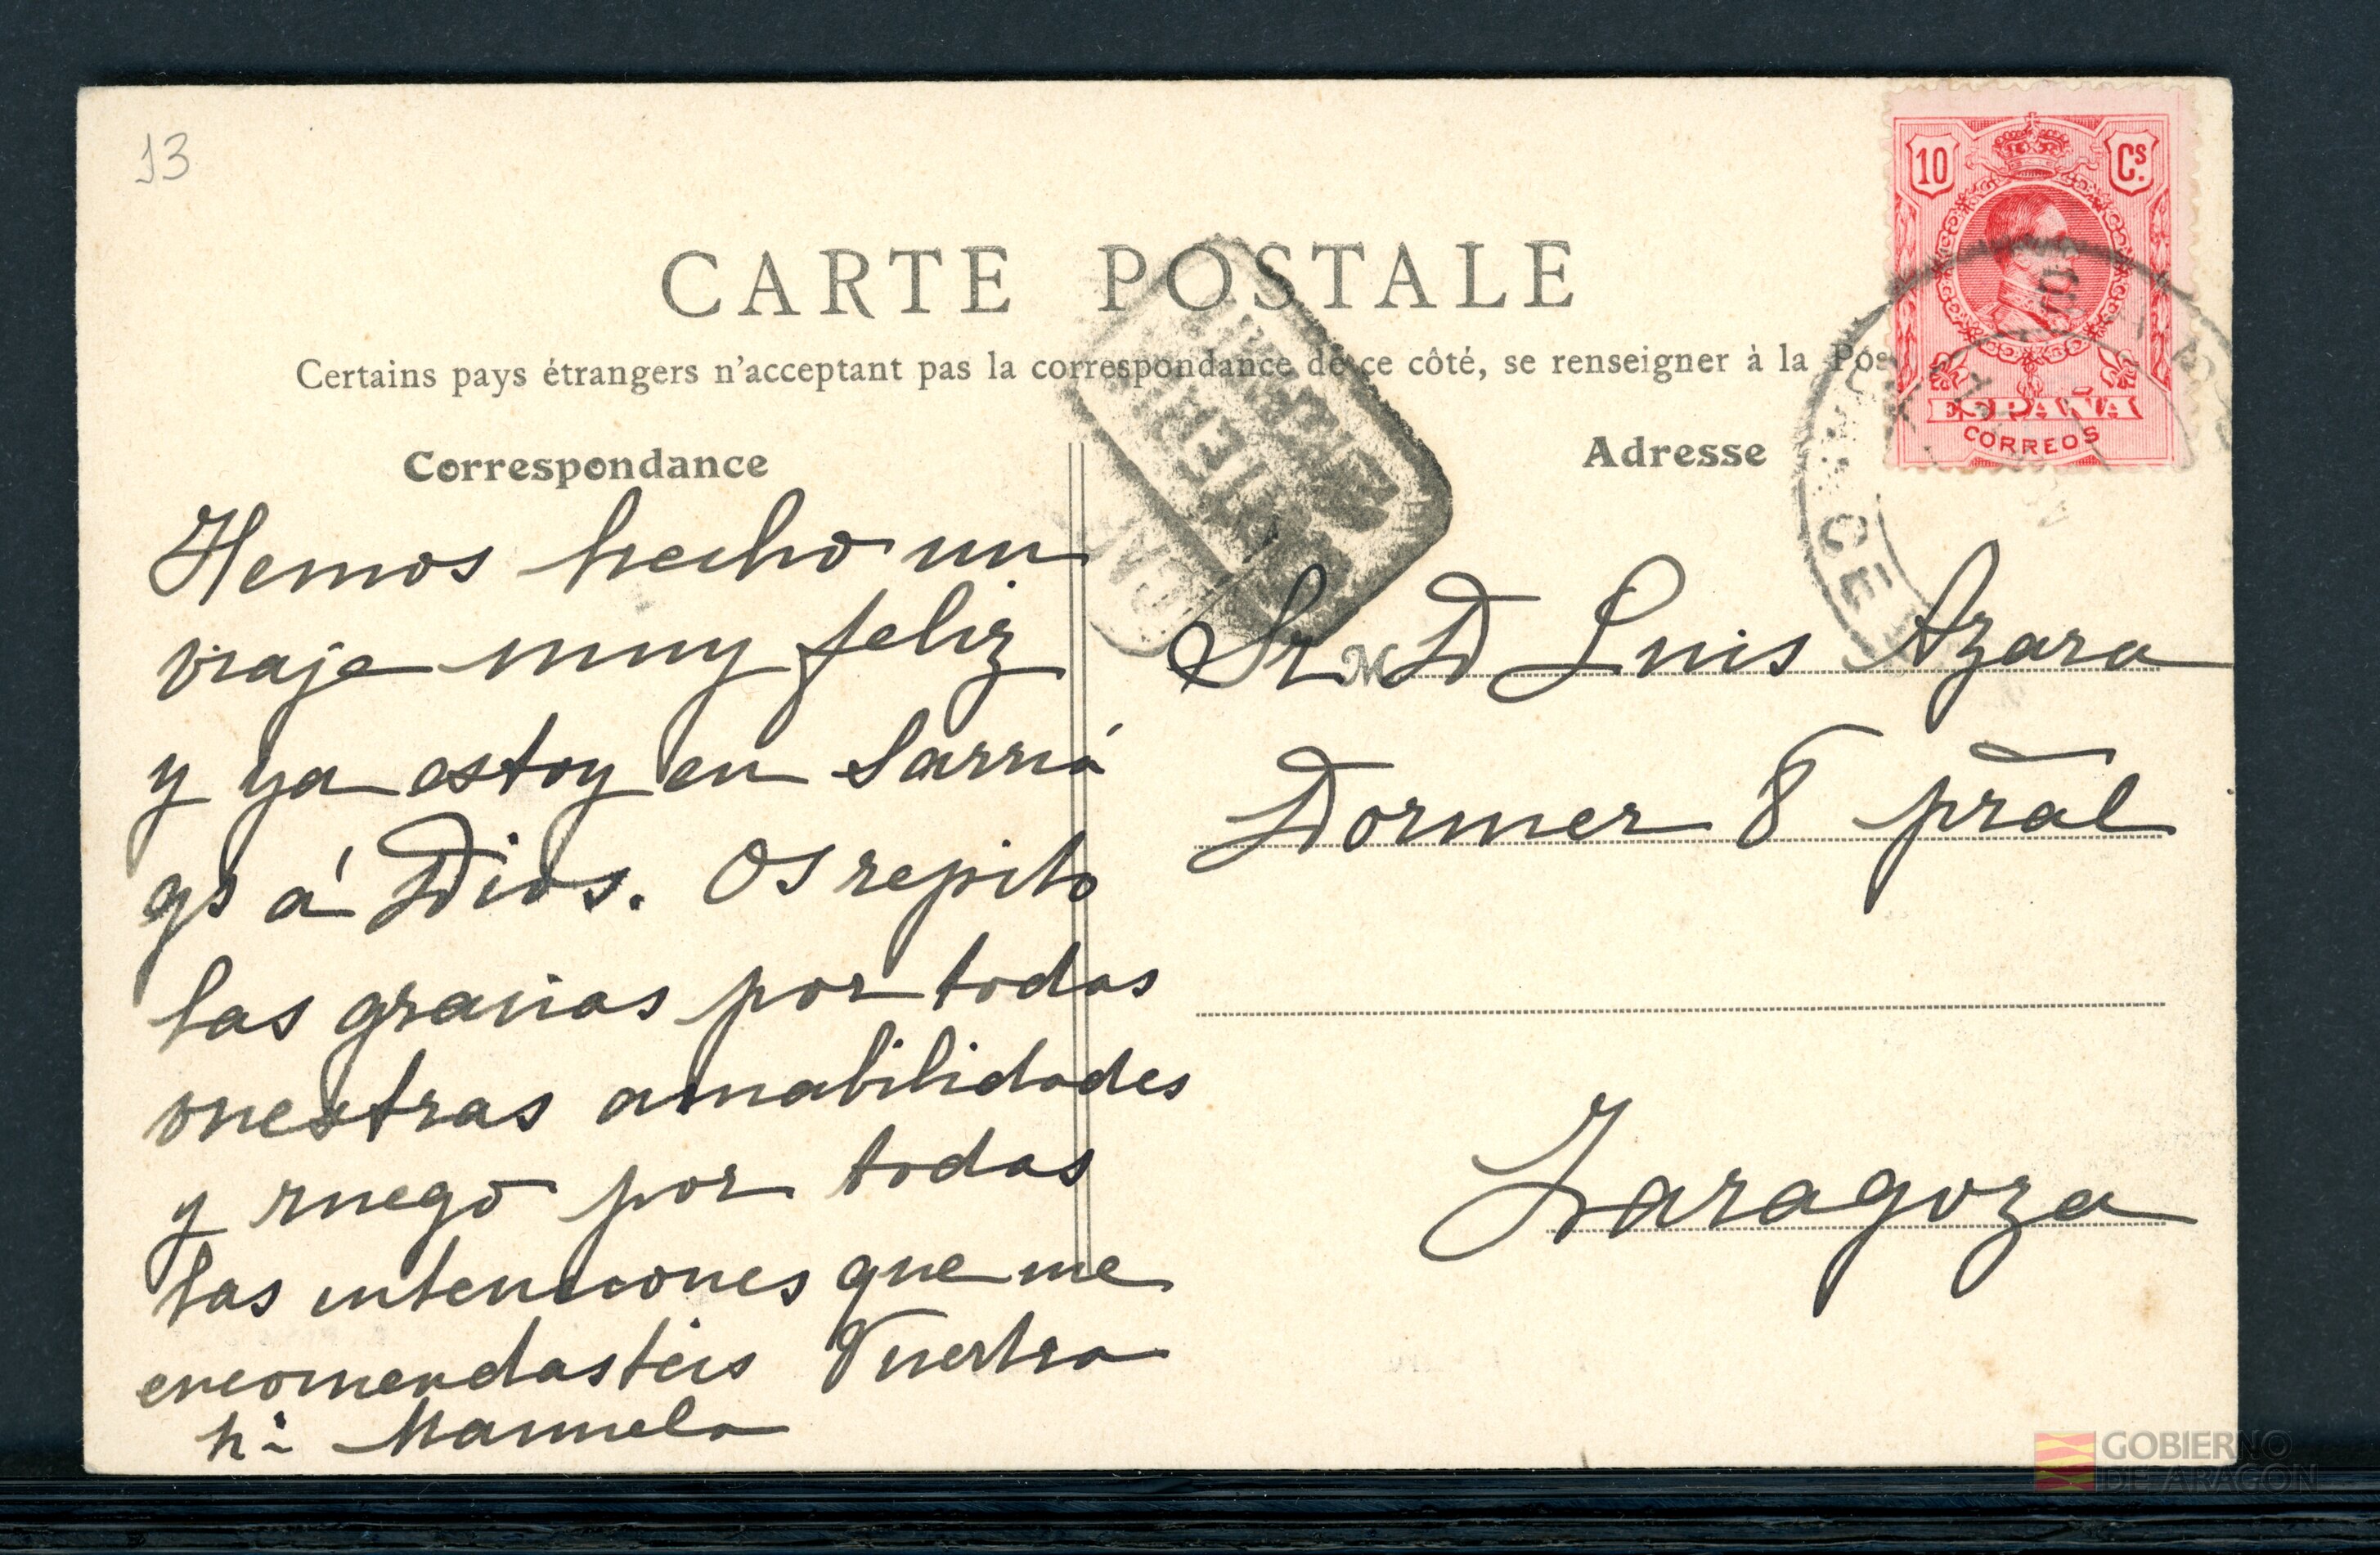 13
CARTE POSTALE
Certains pays étrangers n'acceptant pas la correspondance de ce côté, se renseigner à la Pos
Correspondance
Adresse
10 Cs.
ESPAÑA
CORREOS
Hemos hecho un
viaje muy feliz
y ya estoy en Sarriá
gs á Dios. Os repito
las gracias por todas
vuestras amabilidades
y ruego por todas
las intenciones que me
encomendasteis Vuestra
hª Manuela
Sr D Luis Azara
Dormer 8 pral
Zaragoza
GOBIERNO
DE ARAGON